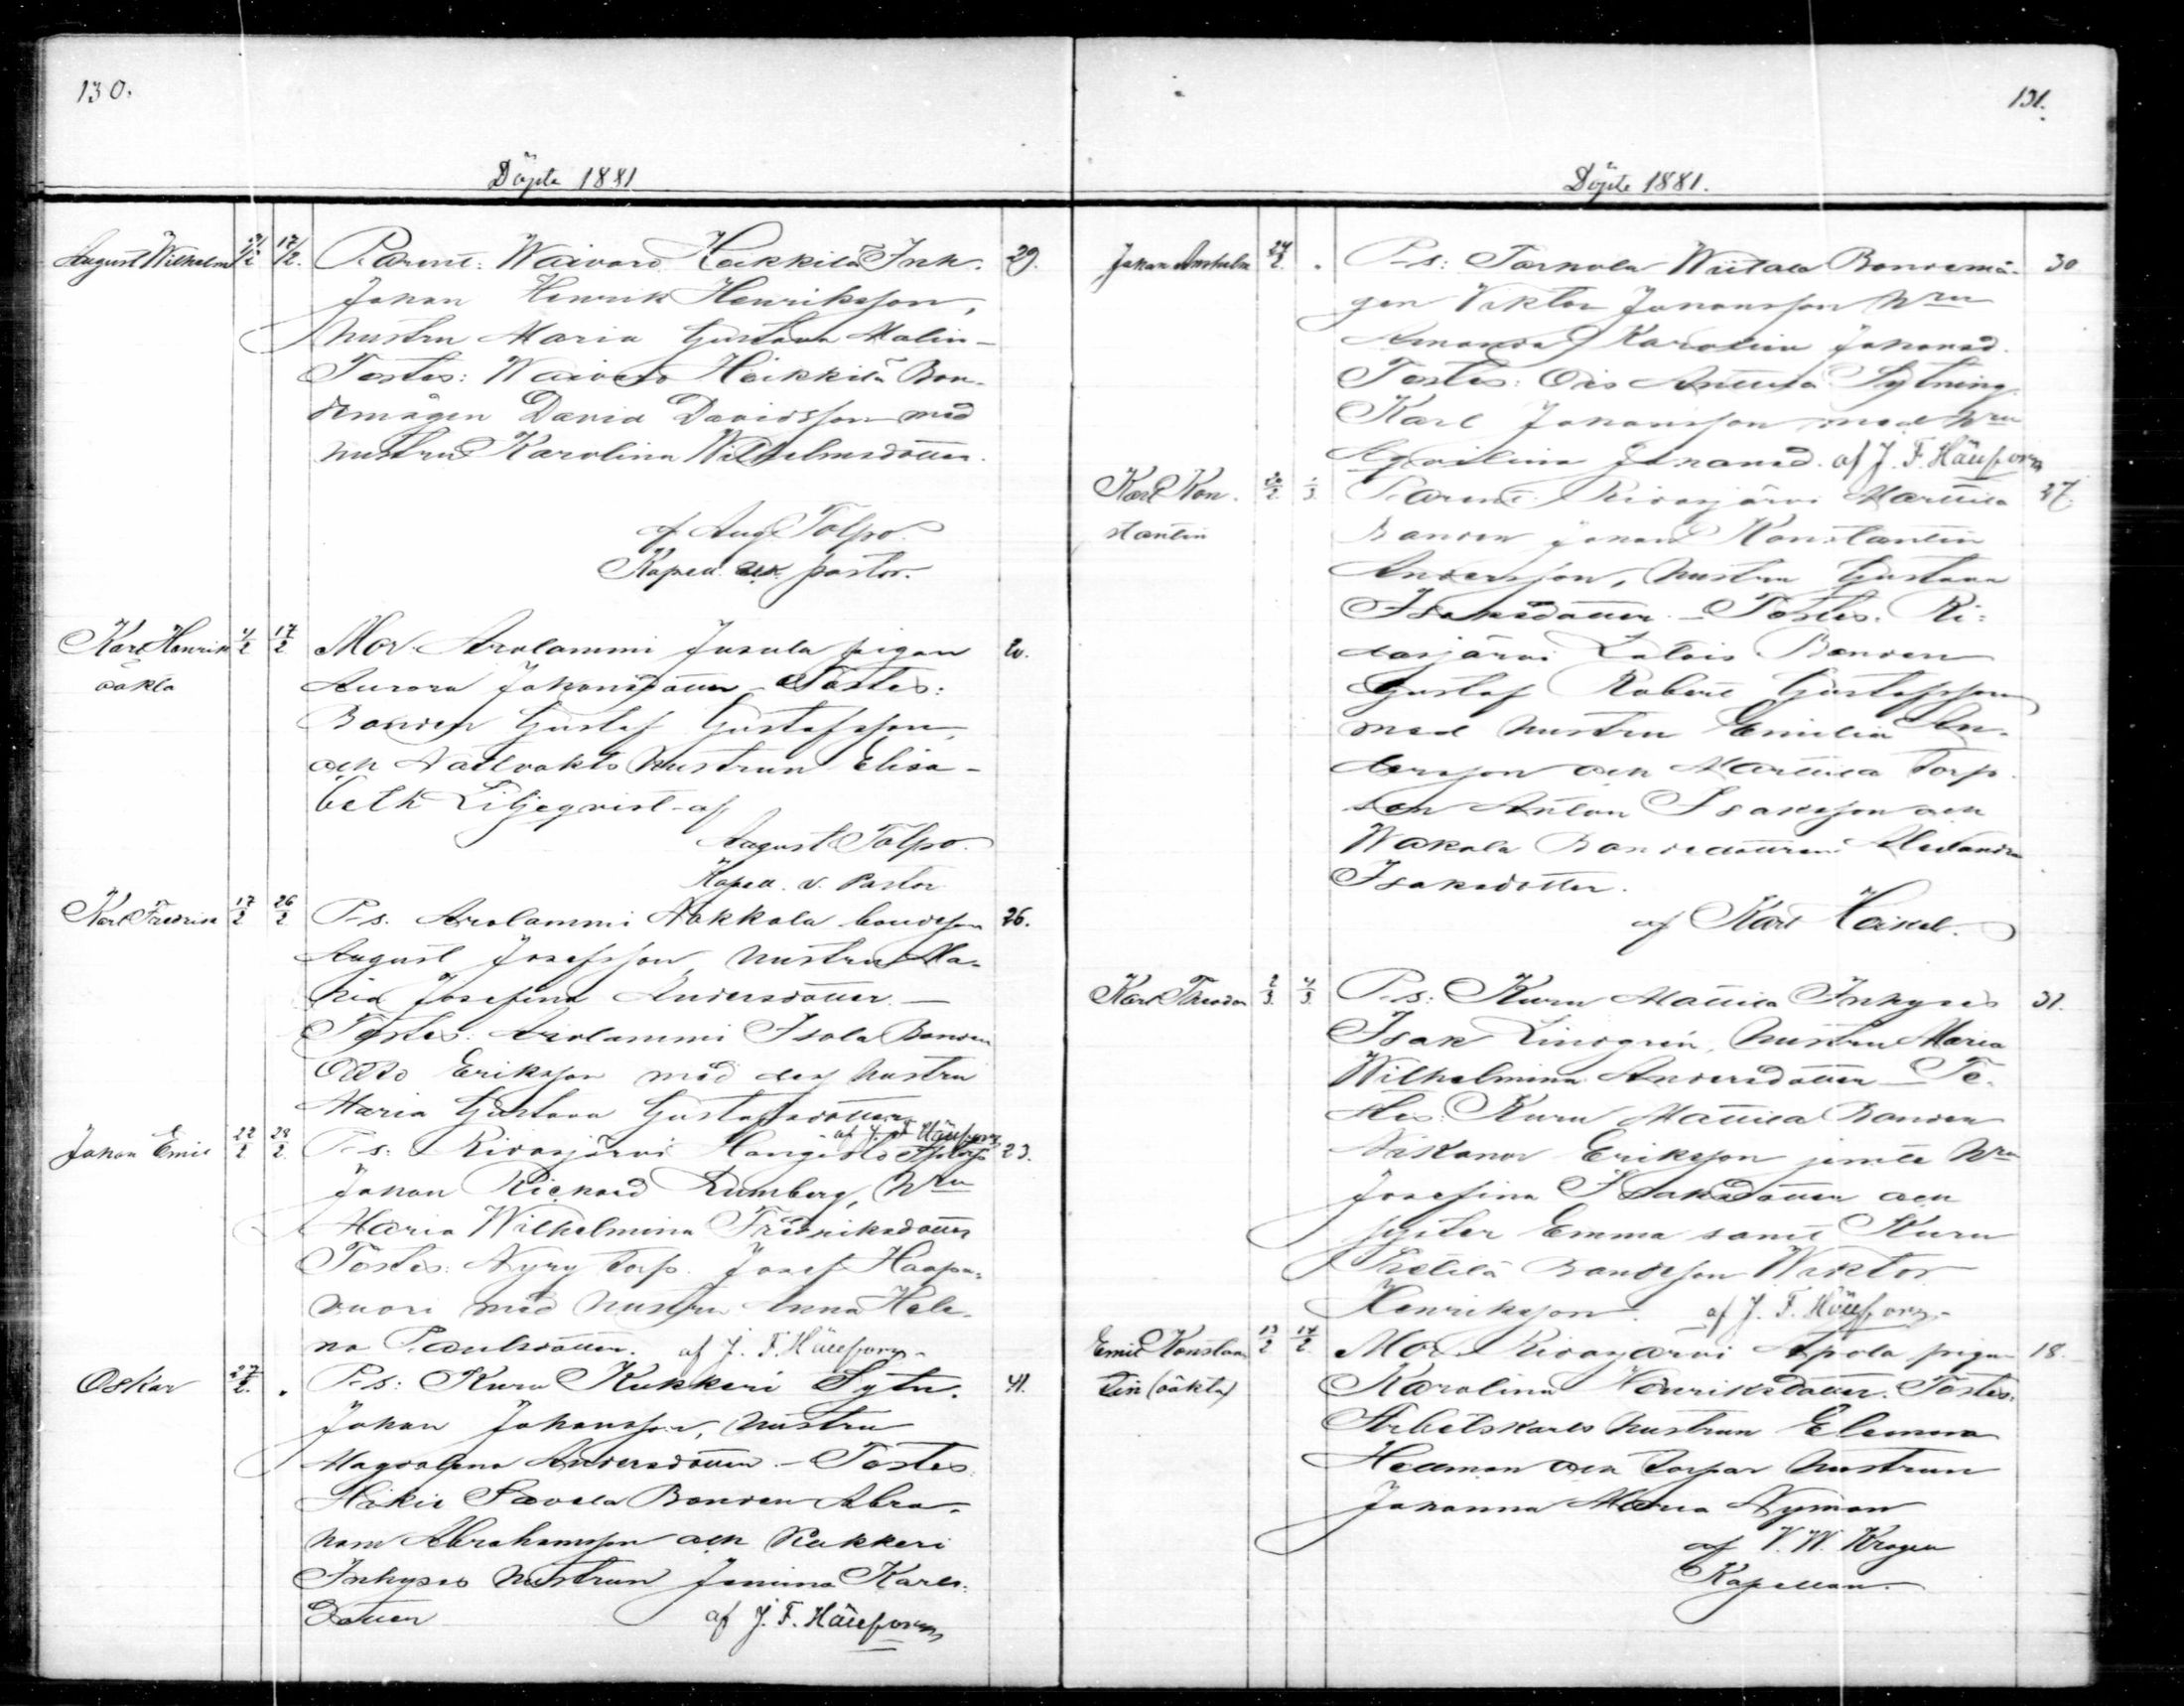 130.
Döpte 1881
August Wilhelm 17/2. Parent: Waivaro Heikkilä Inh. 29.
Johan Henrik Henriksson,
hustru Maria Gustava Malin-
Testes: Waivaro Heikkilä Bon-
demågen David Davidsson med
hustru Karolina Wilhelmsdotter.
af Aug. Tolpo.
Kapell. pastor.
Karl Henrik 4/2 17/2 Mod. Arolammi Jusula pigan 20.
oäkta Aurora Johansdotter - Testes:
Bonden Gustaf Gustafsson,
och hustrun Elisa-
beth Liljeqvist - af
August Tolpo.
Kapell. v. Pastor
Karl Fredrik 17/2 26/2 P-s. Arolammi Nokkala bondeson 26.
August Josefsson, hustru Ma-
ria Josefina Andersdotter. -
Testes: Arolammi Isola Bonden
Otto Eriksson med dess hustru
Maria Gustava Gustafsdotter
af J. F. Hällfors
Johan Emil 22/2 28/2 P-s: Ridasjärvi Hangisto 23.
Johan Rickard Lumberg, Hru
Maria Wilhelmina Fredriksdotter
Testes: Nyry torp. Josef Haapa-
vuori med hustru Anna Hele-
na Paulsdotter. af J. F. Hällfors
Oskar 27/2. " P-s: Kuru Kukkeri Sytn. 41.
Johan Johansson, hustru
Magdalena Andersdotter. - Testes
Hikiä Savela Bonden Abra-
ham Abrahamsson och Kukkeri
Inhyses hustrun Janina Karls-
dotter af J. F. Hällfors
131.
Döpte 1881.
Johan 27/2. " P-s: Tarkola Wiitala Bondemå- 30
gen Viktor Johansson Hru
Amanda Karolina Johansd.
Testes: Ois Anttila Sytning.
Karl Johansson med Hru
Johansd. af J. F. Hällfors
Karl Kon- 20/2 1/3. Parent: Ridasjärvi Marttila 27.
stantin Bonden Johan Konstantin
Andersson, hustru Gustava
Isaksdotter. - Testes. Ri-
dasjärvi Latvis Bonden
Gustaf Robert Gustafsson
med hustru Emilia An-
dersson och Marttila Torp.
son Anton Isaksson och
Wakola Bondedottren Alexandra
Isaksdotter.
af Karl Heikel.
Karl Theodor 2/3. 4/3. P-s: Kuru Mattila Inhyses 31.
Isak Lindgrén, hustru Maria
Wilhelmina Andersdotter - Te-
stes: Kuru Mattila Bonden
Nikanor Eriksson jemte Hru
Josefina Isaksdotter och
syster Emma samt Kuru
bondeson Wiktor
Henriksson. af J. F. Hällfors.
Emil Konstan- 13/2 14/2. Mod. Ridasjärvi pigan 18.
tin (oäkta) Karolina Henriksdotter. Testes:
Arbetskarls hustrun Eleonora
Hellman och torpar hustrun
Johanna Maria Nyman
af V. W. Krogen
Kapellan.